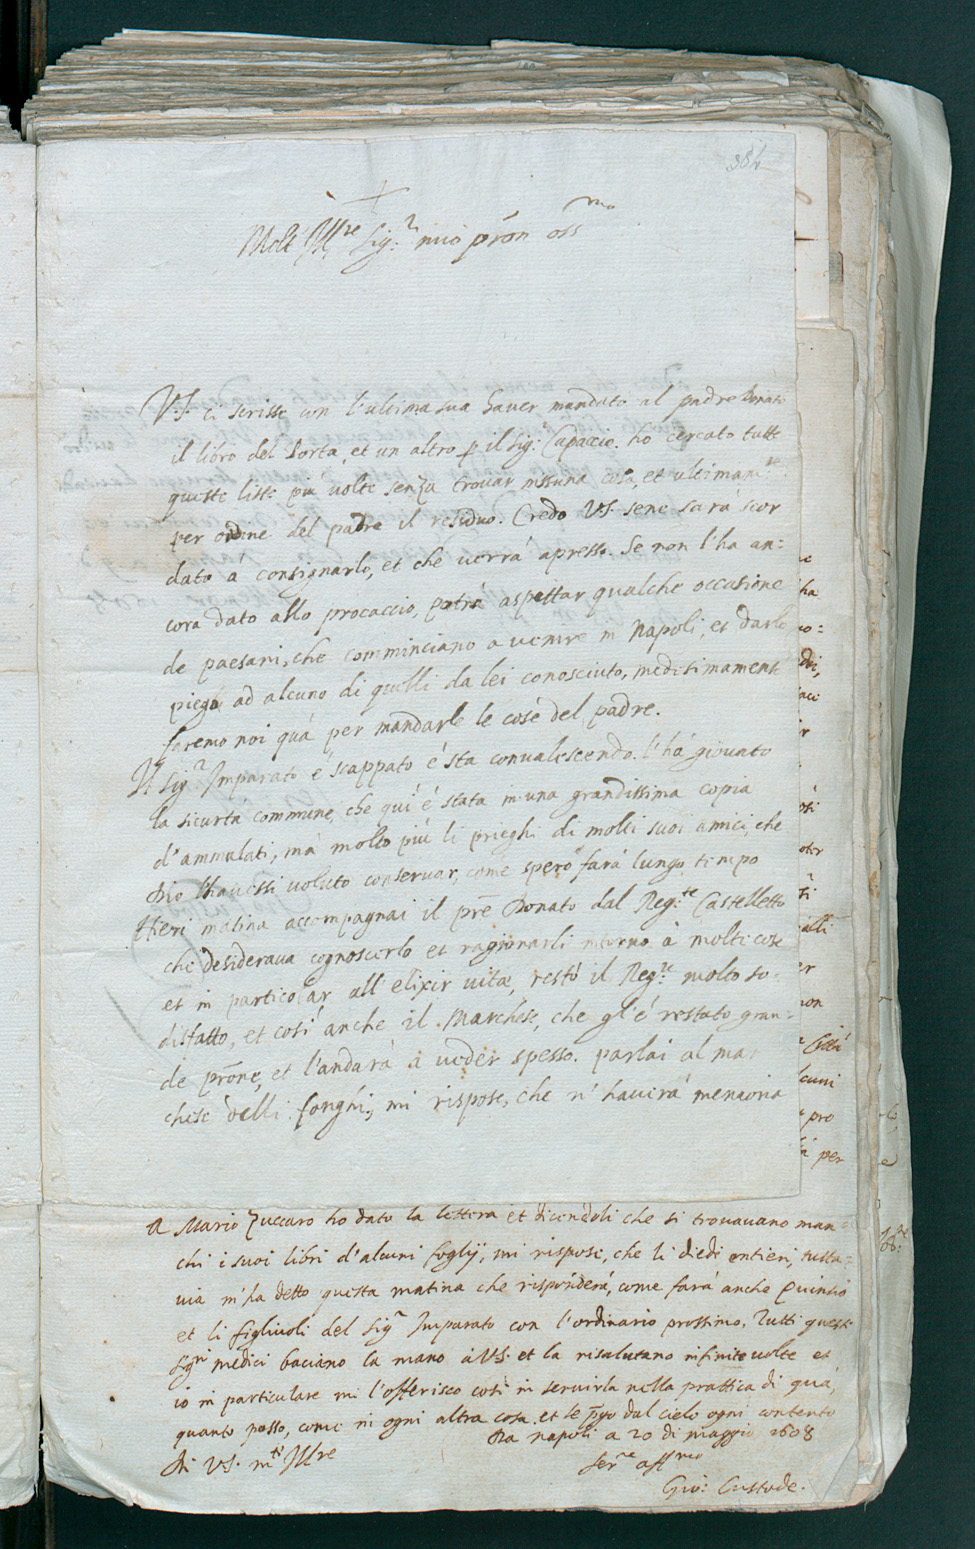 384
Molt Ill.re Sig.r mio prōn oss.mo
V.S. ci scrisse con l'ultima sua haver mandato al padre Donato
il libro del Porta, et un altro p il Sig. Capaccio. ho cercato tutte
queste liste più volte senza trovar nissuna cosa, et ultimam.te
per ordine del padre il residuo. Credo VS. sene sarà scor
dato a consignarlo, et che verrà apresso. Se non l'ha an:
cora dato allo procaccio, potrà aspettar qualche occasione
de paesani, che comminciano a venire in Napoli, et darlo
piego ad alcuno di quelli da lei conosciuto, medesimamente
faremo noi quà per mandarle le cose del padre.
Il Sig.r Imparato è scappato è sta convalescendo. l'hà giovato
la sicurtà commune, che quì è stata in una grandissima copia
d'ammalati, mà molto più li prieghi di molti suoi amici, che
Dio l'havessi voluto conservar, come spero farà lungo tempo
Hieri matina accompagnai il prē Donato dal Reg.te Castelletto
che desiderava cognoscerlo et ragionarli intorno à molte cose
et in particolar all'elixir vitæ, restò il Reg.te molto so
disfatto, et così anche il Marchese, che gl'è restato gran
de prōne, et l'andarà à veder spesso. parlai al mar
chese delli fonghi, mi rispose, che n'haverà memoria
A Mario Zuccaro ho dato la lettera et dicendoli che si trovavano man
chi i suoi libri d'alcuni foglij, mi rispose, che li diedi entieri, tutta
via m'ha detto questa matina che risponderà, come farà anche Quintio
et li figliuoli del Sig.r Imparato con l'ordinario prossimo. Tutti questi
Sig.ri medici baciano la mano à VS. et la risalutano infinite volte et
io in particulare mi l'offerisco così in servirla nella prattica di quà,
quanto posso, come in ogni altra cosa, et le p̄go dal cielo ogni contento
Da Napoli a 20 di maggio 1608
Di VS. m.to Ill.re
Ser.re aff.mo
Gio: Custode.